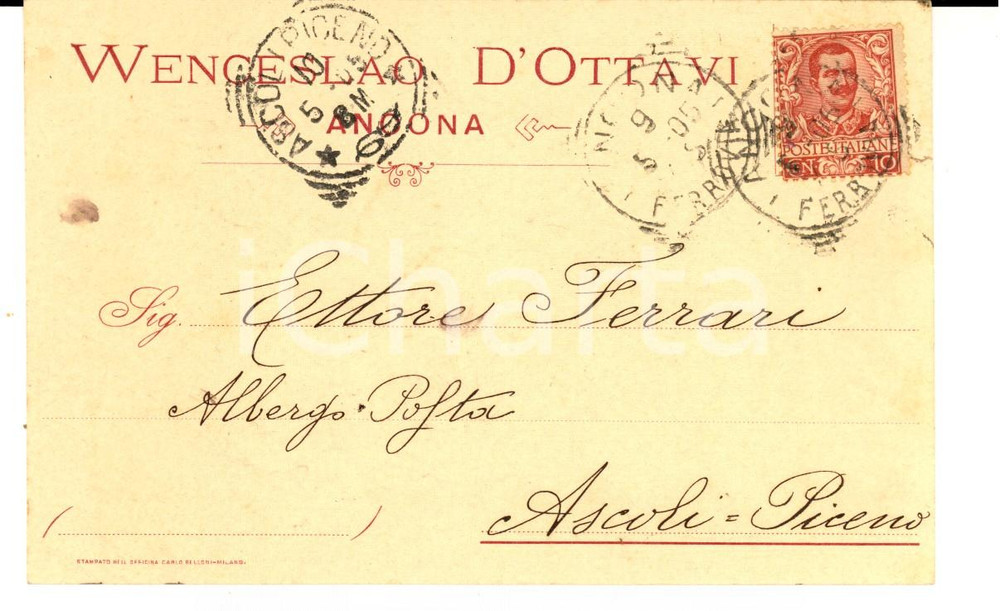 WENCESLAO D'OTTAVI
ANCONA
ASCOLI PICENO
5 10 05
8 M
FERR
FERR
POSTE ITALIANE
10
iCharta
Sig. Ettore Ferrari
Albergo Posta
Ascoli = Piceno
( )
STAMPATO NELL'OFFICINA CARLO BELLONI-MILANO.